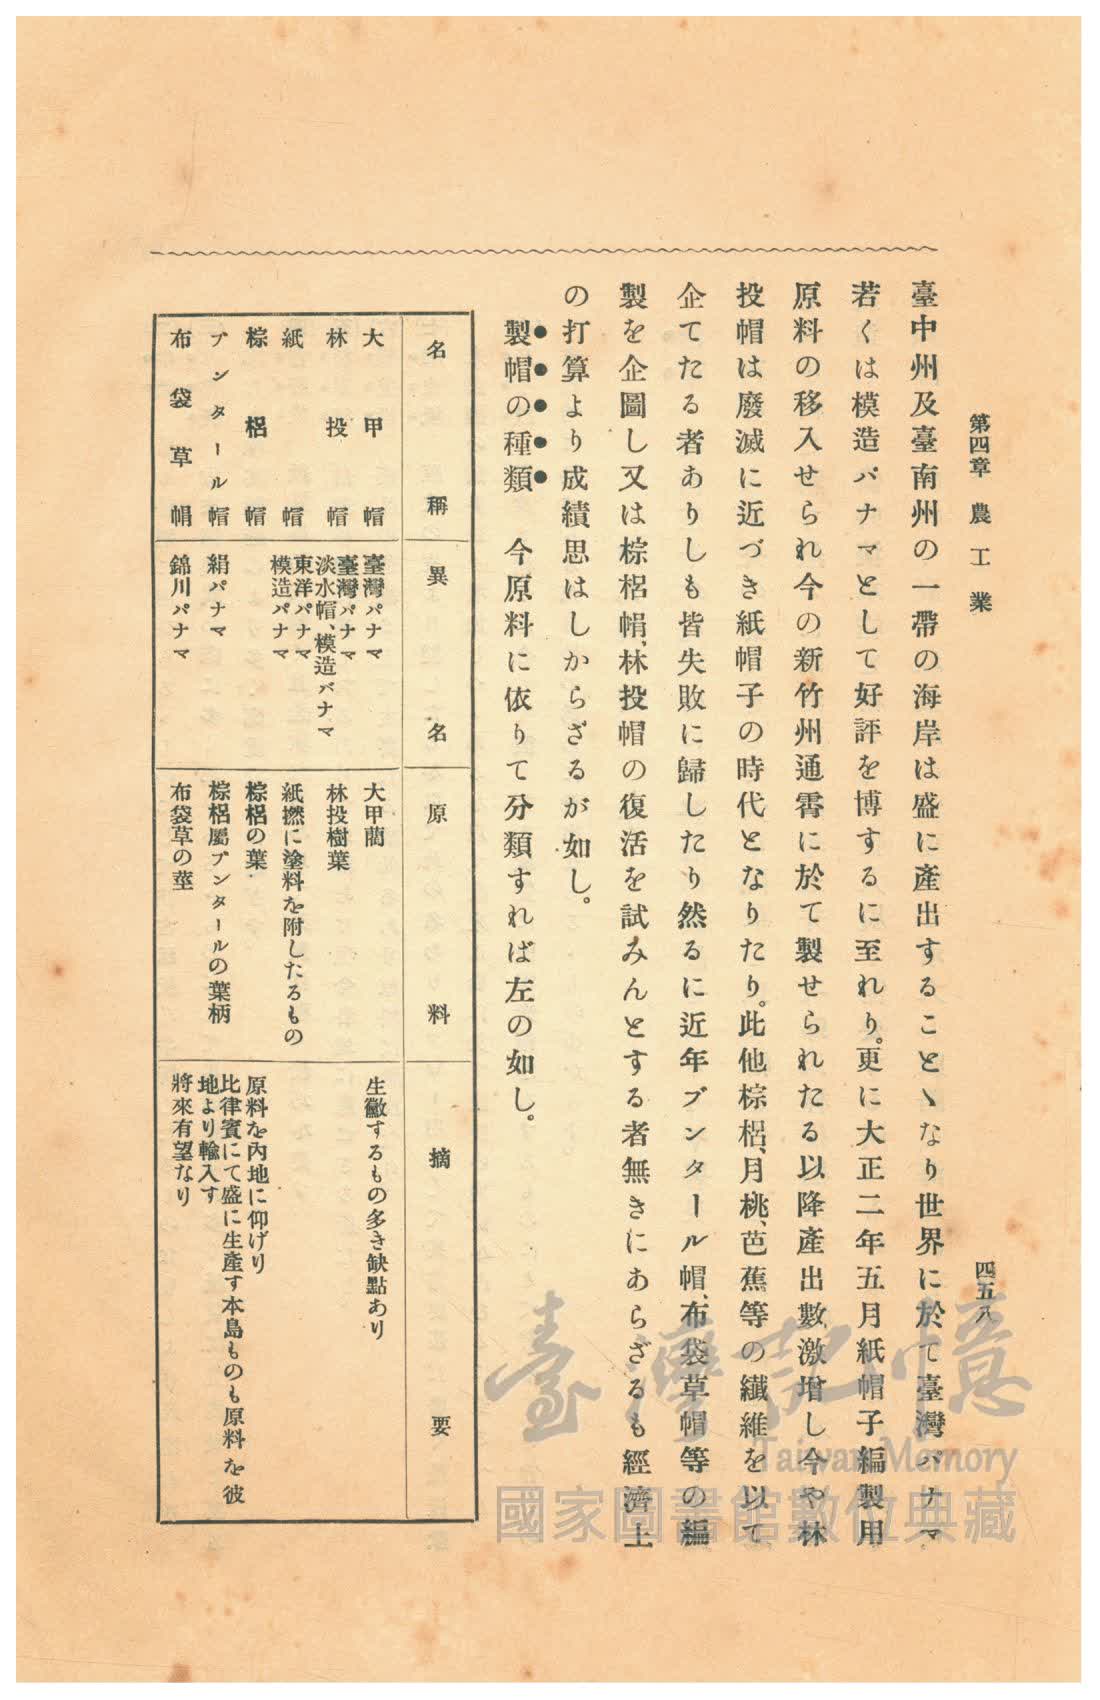 第四章 農工業
四五八
臺中州及臺南州の一帶の海岸は盛に產出することゝなり世界に於て臺灣パナマ
若くは模造パナマとして好評を博するに至れり。更に大正二年五月紙帽子編製用
原料の移入せられ今の新竹州通霄に於て製せられたる以降產出數激增し今や林
投帽は廢滅に近づき紙帽子の時代となりたり。此他棕梠、月桃、芭蕉等の纖維を以て
企てたる者ありしも皆失敗に歸したり然るに近年ブンタール帽、布袋草帽等の編
製を企圖し又は棕梠帽、林投帽の復活を試みんとする者無きにあらざるも經濟上
の打算より成績思はしからざるが如し。
製帽の種類 今原料に依りて分類すれば左の如し。
名稱 異名 原料 摘要
大甲帽 臺灣パナマ 大甲藺 生黴するもの多き缺點あり
林投帽 臺灣パナマ 淡水帽、模造パナマ 林投樹葉
紙帽 東洋パナマ 模造パナマ 紙撚に塗料を附したるもの
棕梠帽 棕梠の葉 原料を內地に仰げり
ブンタール帽 絹パナマ 棕梠屬ブンタールの葉柄 比律賓にて盛に生產す本島ものも原料を彼地より輸入す
布袋草帽 錦川パナマ 布袋草の莖 將來有望なり
臺灣記憶
Taiwan Memory
國家圖書館數位典藏